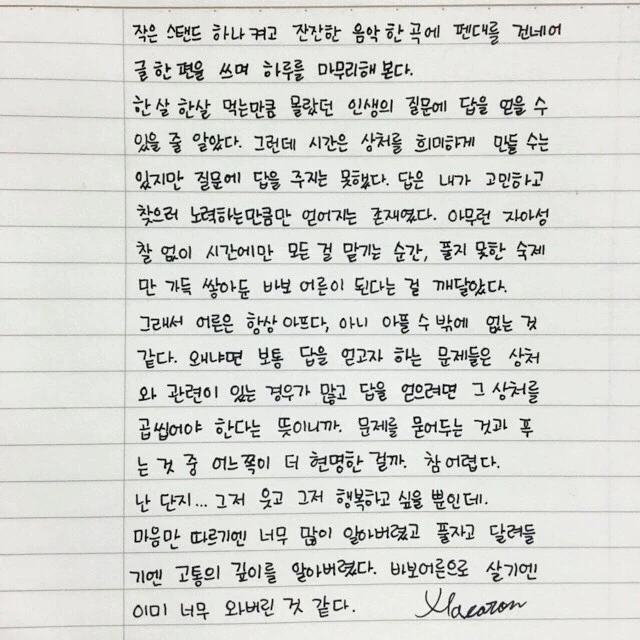 작은 스탠드 하나 켜고 잔잔한 음악 한 곡에 펜대를 건네어
글 한 편을 쓰며 하루를 마무리해 본다.
한살 한살 먹는만큼 몰랐던 인생의 질문에 답을 얻을 수
있을 줄 알았다. 그런데 시간은 상처를 희미하게 만들 수는
있지만 질문에 답을 주지는 못했다. 답은 내가 고민하고
찾으러 노력하는만큼만 얻어지는 존재였다. 아무런 자아성
찰 없이 시간에만 모든 걸 맡기는 순간, 풀지 못한 숙제
만 가득 쌓아둔 바보 어른이 된다는 걸 깨달았다.
그래서 어른은 항상 아프다, 아니 아플 수 밖에 없는 것
같다. 왜냐면 보통 답을 얻고자 하는 문제들은 상처
와 관련이 있는 경우가 많고 답을 얻으려면 그 상처를
곱씹어야 한다는 뜻이니까. 문제를 묻어두는 것과 푸
는 것 중 어느쪽이 더 현명한 걸까. 참 어렵다.
난 단지... 그저 웃고 그저 행복하고 싶을 뿐인데.
마음만 따르기엔 너무 많이 알아버렸고 풀자고 달려들
기엔 고통의 깊이를 알아버렸다. 바보어른으로 살기엔
이미 너무 와버린 것 같다.